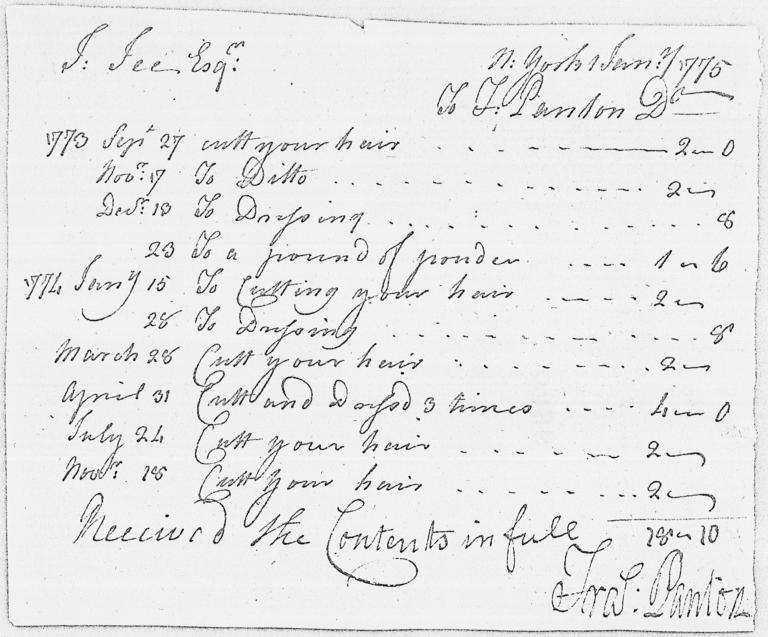 J: Jee Esqr:
N: York 1 Jany 1775
To F: Panton Dr
1773 Sepr 27 cutt your hair . . . . 2 " 0
Novr: 17 To Ditto . . . . . . . . . . . . . . . 2 "
Decr: 18 To Dressing . . . . . . . . . . . . . . 8
23 To a pound of pouder . . . . 1 " 6
1774 Jany 15 To Cutting your hair . . . . 2 "
28 To Dressing . . . . . . . . . . . . . 8
March 28 Cutt your hair . . . . . . . . . 2 "
April 31 Cutt and dressd 3 times . . . . 4 " 0
July 24 Cutt your hair . . . . . . . 2 "
Novr 18 Cutt your hair . . . . . . . . . 2 "
Receiv'd the Contents in full 18 " 10
Fras: Panton